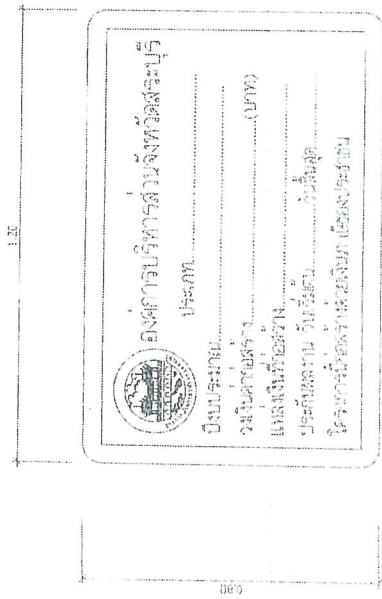 1.20
องค์การบริหารส่วนจังหวัดสระบุรี
ประเภท
ปีงบประมาณ
วงเงินค่าก่อสร้าง (บาท)
แหล่งเงินค่าก่อสร้าง
ประกันผลงาน วันเริ่มต้น วันสิ้นสุด
โครงการนี้ก่อสร้างด้วยเงินภาษีของประชาชน
0.80